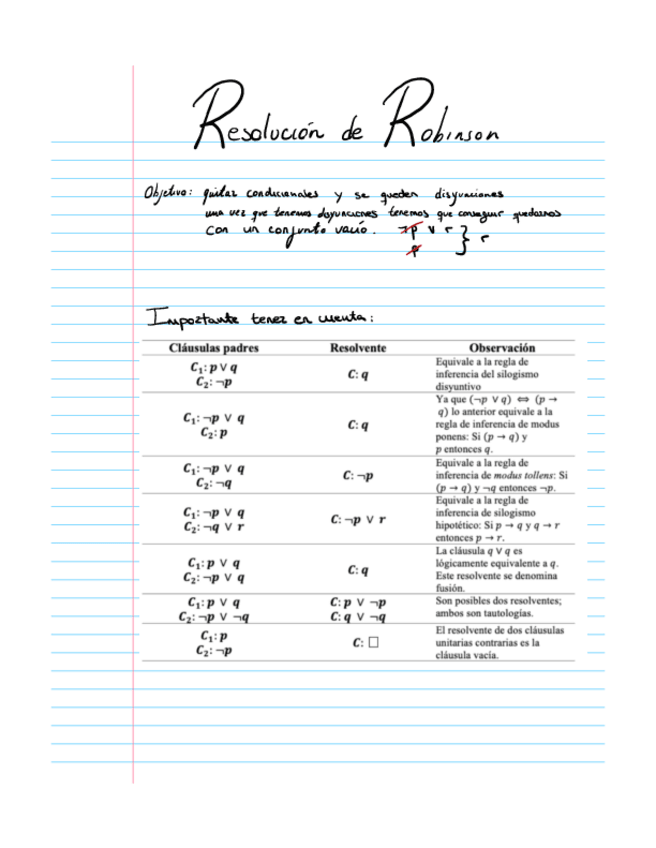 Resolución de Robinson
Objetivo: quitar condicionales y se queden disyunciones
una vez que tenemos disyunciones tenemos que conseguir quedarnos
con un conjunto vacío. ¬p ∨ r
p } r
Importante tener en cuenta:
Cláusulas padres Resolvente Observación
C₁: p ∨ q
C₂: ¬p
C: q
Equivale a la regla de
inferencia del silogismo
disyuntivo
C₁: ¬p ∨ q
C₂: p
C: q
Ya que (¬p ∨ q) ⇔ (p →
q) lo anterior equivale a la
regla de inferencia de modus
ponens: Si (p → q) y
p entonces q.
C₁: ¬p ∨ q
C₂: ¬q
C: ¬p
Equivale a la regla de
inferencia de modus tollens: Si
(p → q) y ¬q entonces ¬p.
C₁: ¬p ∨ q
C₂: ¬q ∨ r
C: ¬p ∨ r
Equivale a la regla de
inferencia de silogismo
hipotético: Si p → q y q → r
entonces p → r.
C₁: p ∨ q
C₂: ¬p ∨ q
C: q
La cláusula q ∨ q es
lógicamente equivalente a q.
Este resolvente se denomina
fusión.
C₁: p ∨ q
C₂: ¬p ∨ ¬q
C: p ∨ ¬p
C: q ∨ ¬q
Son posibles dos resolventes;
ambos son tautologías.
C₁: p
C₂: ¬p
C: □
El resolvente de dos cláusulas
unitarias contrarias es la
cláusula vacía.